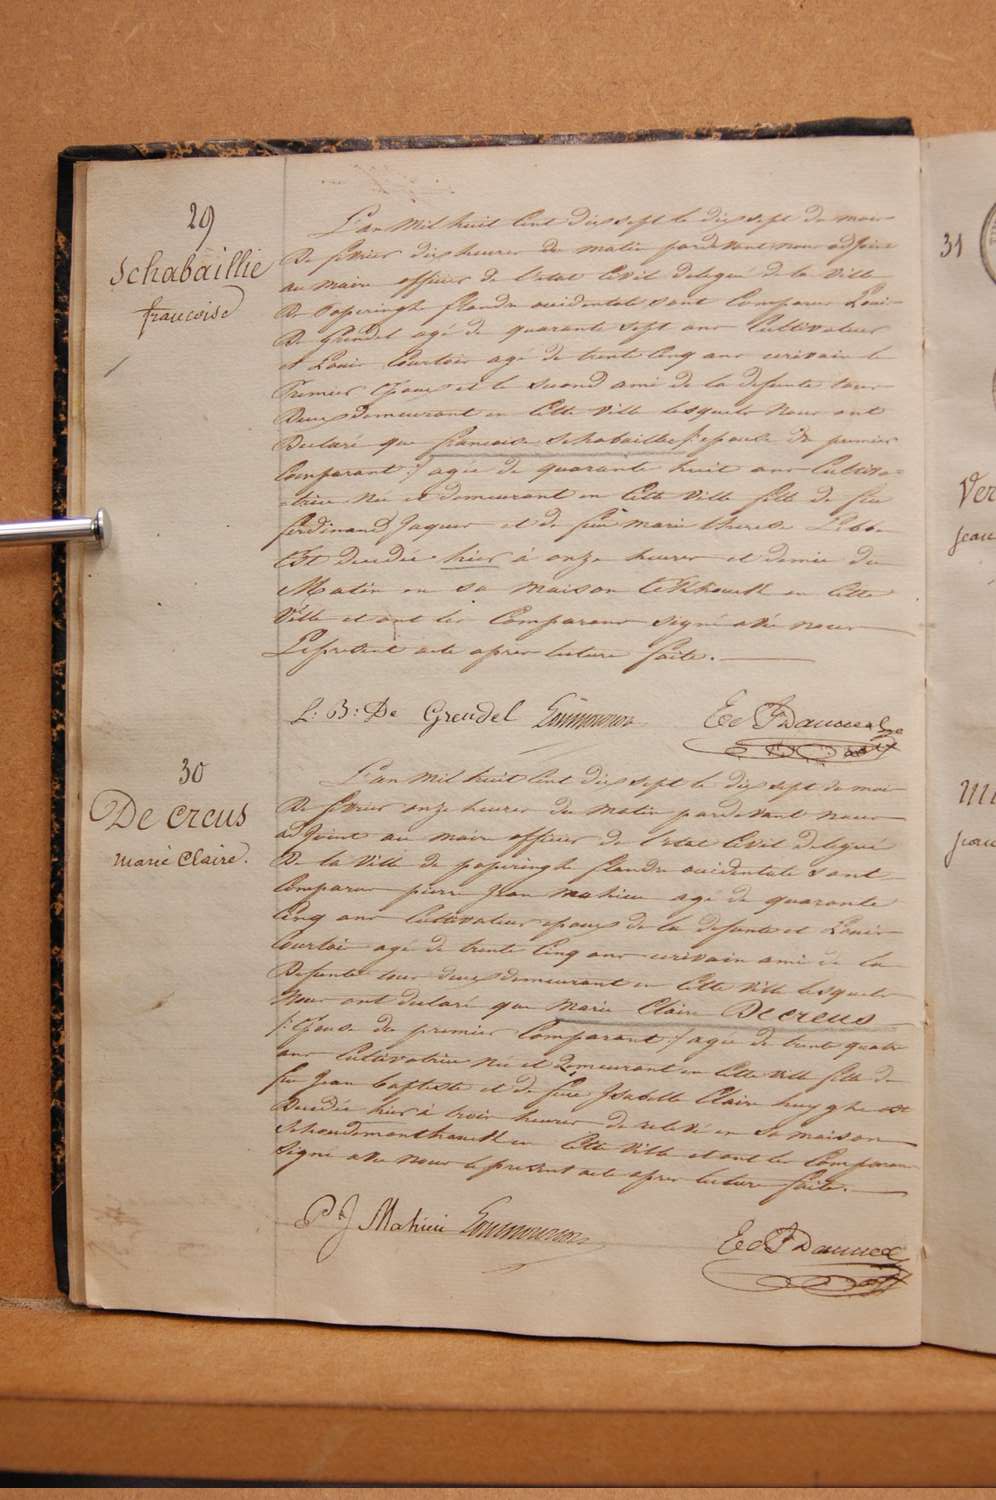 29
Schabaillie
francoise
L'an Mil huit Cent dix sept le dix sept du mois
De fevrier dix heures du matin pardevant nous adjoint
au maire officier de l'etat Civil delegué de la Ville
De Poperinghe flandre occidentale sont Comparus Louis
De Grendel agé de quarante sept ans Cultivateur
et Louis Courtois agé de trente Cinq ans ecrivain le
Premier Epoux et le second ami de la defunte tous
Deux demeurant en Cette Ville lesquels Nous ont
Declaré que francoise Schabaillie /: epouse du premier
Comparant :/ agée de quarante huit ans Cultiva=
=trice Née et demeurant en Cette Ville fille de feu
ferdinand Jaques et de feue marie therese
Est decedée hier à onze heures et demie du
Matin en sa maison en Cette
Ville et ont les Comparans signé avec nous
Le present acte apres lecture faite.
L: B: De Grendel
30
De Creus
marie Claire.
L'an Mil huit Cent dix sept le dix sept du mois
De fevrier onze heures du matin pardevant nous
adjoint au maire officier de l'etat Civil delegué
De la Ville de poperinghe flandre occidentale sont
Comparus pierre Jean Mahieu agé de quarante
Cinq ans Cultivateur epoux de la defunte et Louis
Courtois agé de trente Cinq ans ecrivain ami de la
Defunte tous deux demeurant en Cette Ville lesquels
Nous ont declaré que Marie Claire De creus
/: Epouse du premier Comparant :/ agée de trente quatre
ans Cultivatrice Née et Demeurant en Cette Ville fille de
feu Jean baptiste et de feue Isabelle Claire huyghe est
Decedée hier à trois heures de relevé en sa maison
en Cette Ville et ont les Comparans
Signé avec nous le present acte apres lecture faite.
P J Mahieu
31
Ver
Jean